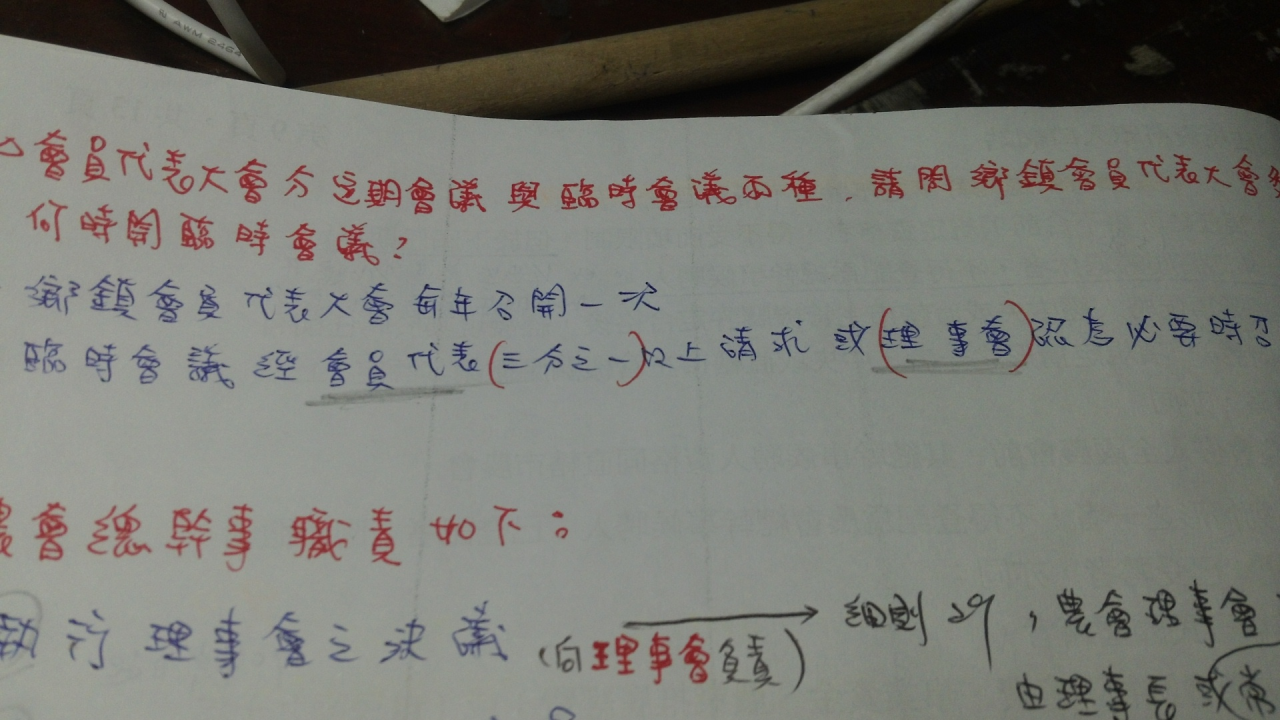 會員代表大會分定期會議與臨時會議兩種，請問鄉鎮會員代表大會
何時開臨時會議？
鄉鎮會員代表大會每年召開一次
臨時會議經會員代表(三分之一)以上請求或(理事會)認為必要時召
農會總幹事職責如下：
執行理事會之決議(向理事會負責) → 細則29，農會理事會
由理事長或常